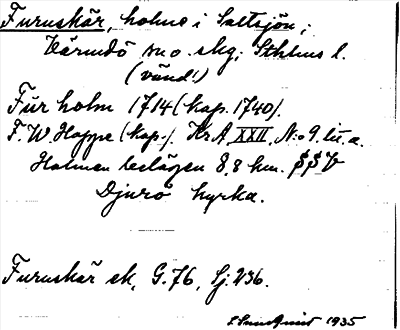 Furuskär, holme i Saltsjön;
Värmdö sn o. skg; Sthlms l.
(vänd!)
Fur holm 1714 (kop. 1740).
F. W. Hoppe (kop.). Kr A XXII, N:o 9. lit. a.
Holmen belägen 8,8 km. V
Djurö kyrka.
Furuskär ek, G. 76, Sj. 236.
Sundquist 1935